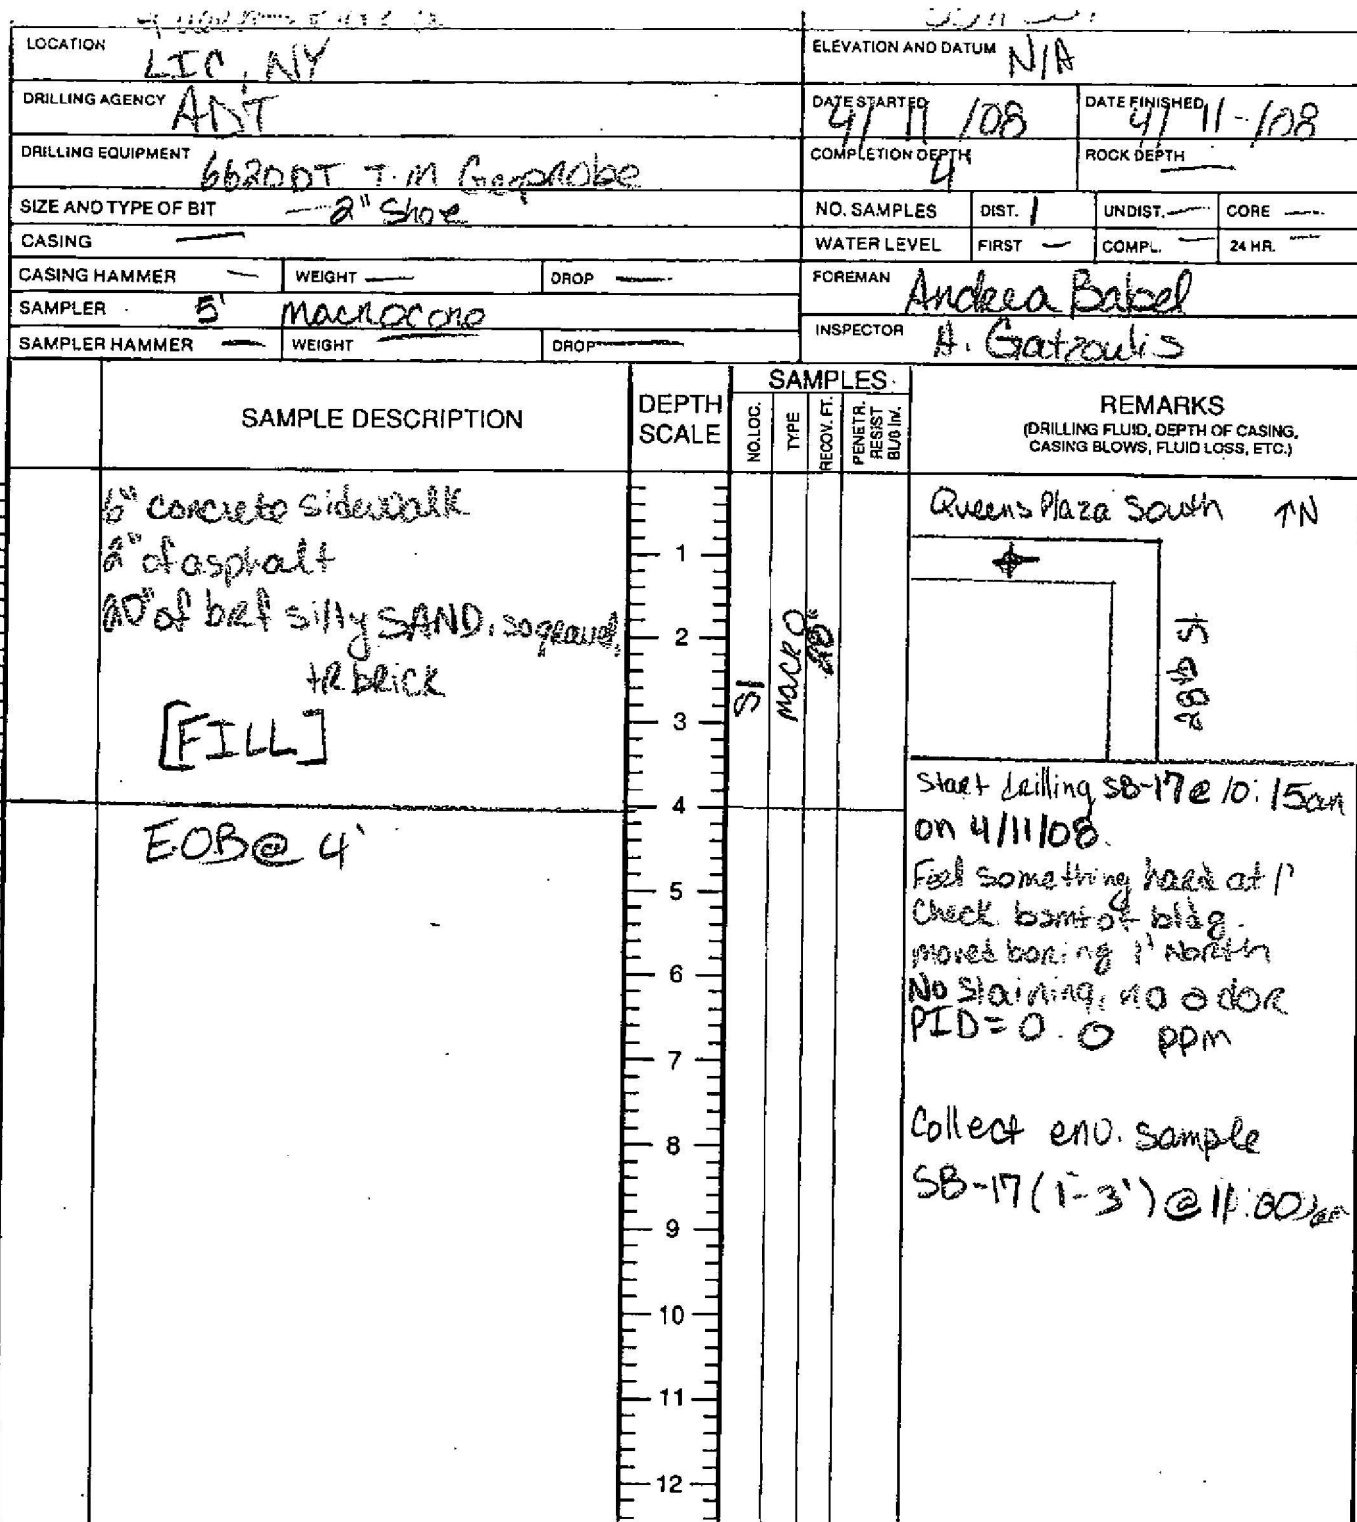 LOCATION LIC, NY
ELEVATION AND DATUM N/A
DRILLING AGENCY ADT
DATE STARTED 4/11/08
DATE FINISHED 4/11/08
DRILLING EQUIPMENT 6620DT T.M Geoprobe
COMPLETION DEPTH 4'
ROCK DEPTH —
SIZE AND TYPE OF BIT — 2" Shoe
NO. SAMPLES DIST. 1 UNDIST. — CORE —
CASING —
WATER LEVEL FIRST — COMPL. — 24 HR. —
CASING HAMMER — WEIGHT — DROP —
FOREMAN Andrea Babel
SAMPLER 5' Macrocore
INSPECTOR A. Gatzoulis
SAMPLER HAMMER — WEIGHT — DROP —
SAMPLE DESCRIPTION
DEPTH SCALE
SAMPLES
NO.LOC.
TYPE
RECOV. FT.
PENETR. RESIST BL/6 IN.
REMARKS
(DRILLING FLUID, DEPTH OF CASING,
CASING BLOWS, FLUID LOSS, ETC.)
6" concrete sidewalk
2" of asphalt
20" of brf silty SAND, so gravel,
tr brick
[FILL]
EOB @ 4'
1
2
3
4
5
6
7
8
9
10
11
12
S1
MACRO
Queens Plaza South ↑N
28th St
Start drilling SB-17 @ 10:15am
on 4/11/08.
Feel something hard at 1'
Check bsmt of bldg.
moved boring 1' North
No staining, no odor
PID = 0.0 ppm
Collect env. sample
SB-17 (1'-3') @ 11:00 am